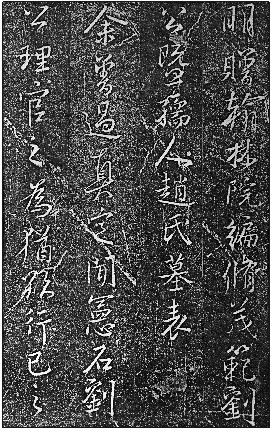 明贈翰林院編脩茂範劉
公暨孺人趙氏墓表
余嘗過真定聞憲石劉
公理官之為猶行已之